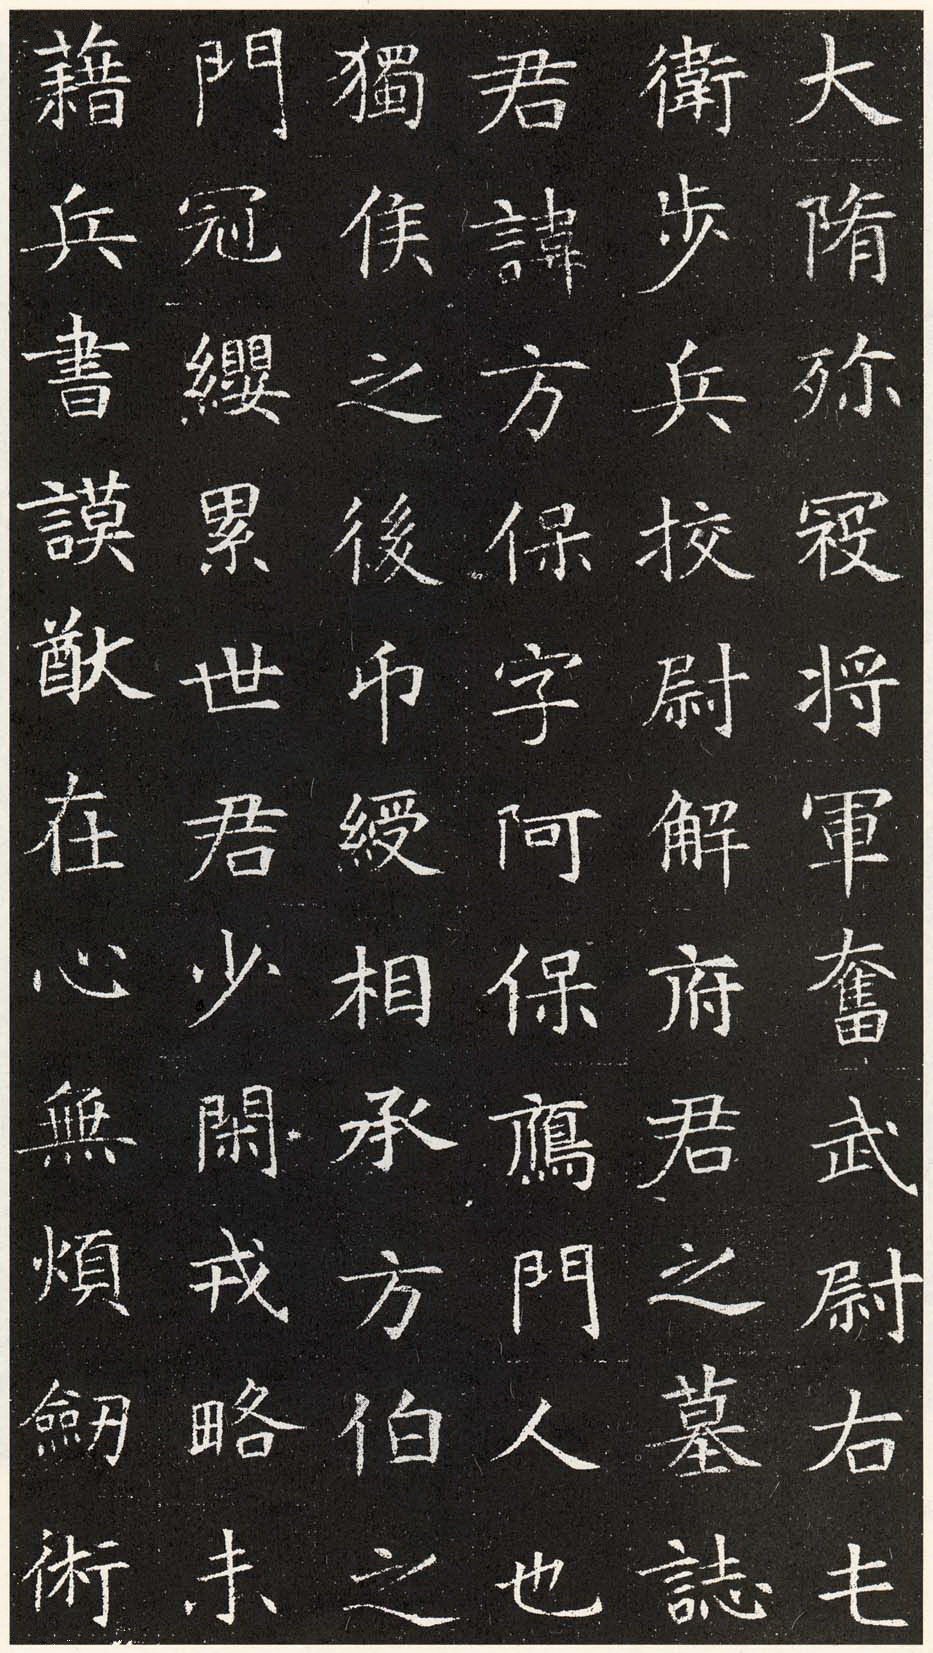 大隋殄寇将軍奮武尉右屯
衛步兵挍尉解府君之墓誌
君諱方保字阿保鴈門人也
獨侯之後印綬相承方伯之
門冠纓累世君少閑戎略未
藉兵書謨猷在心無煩劒術